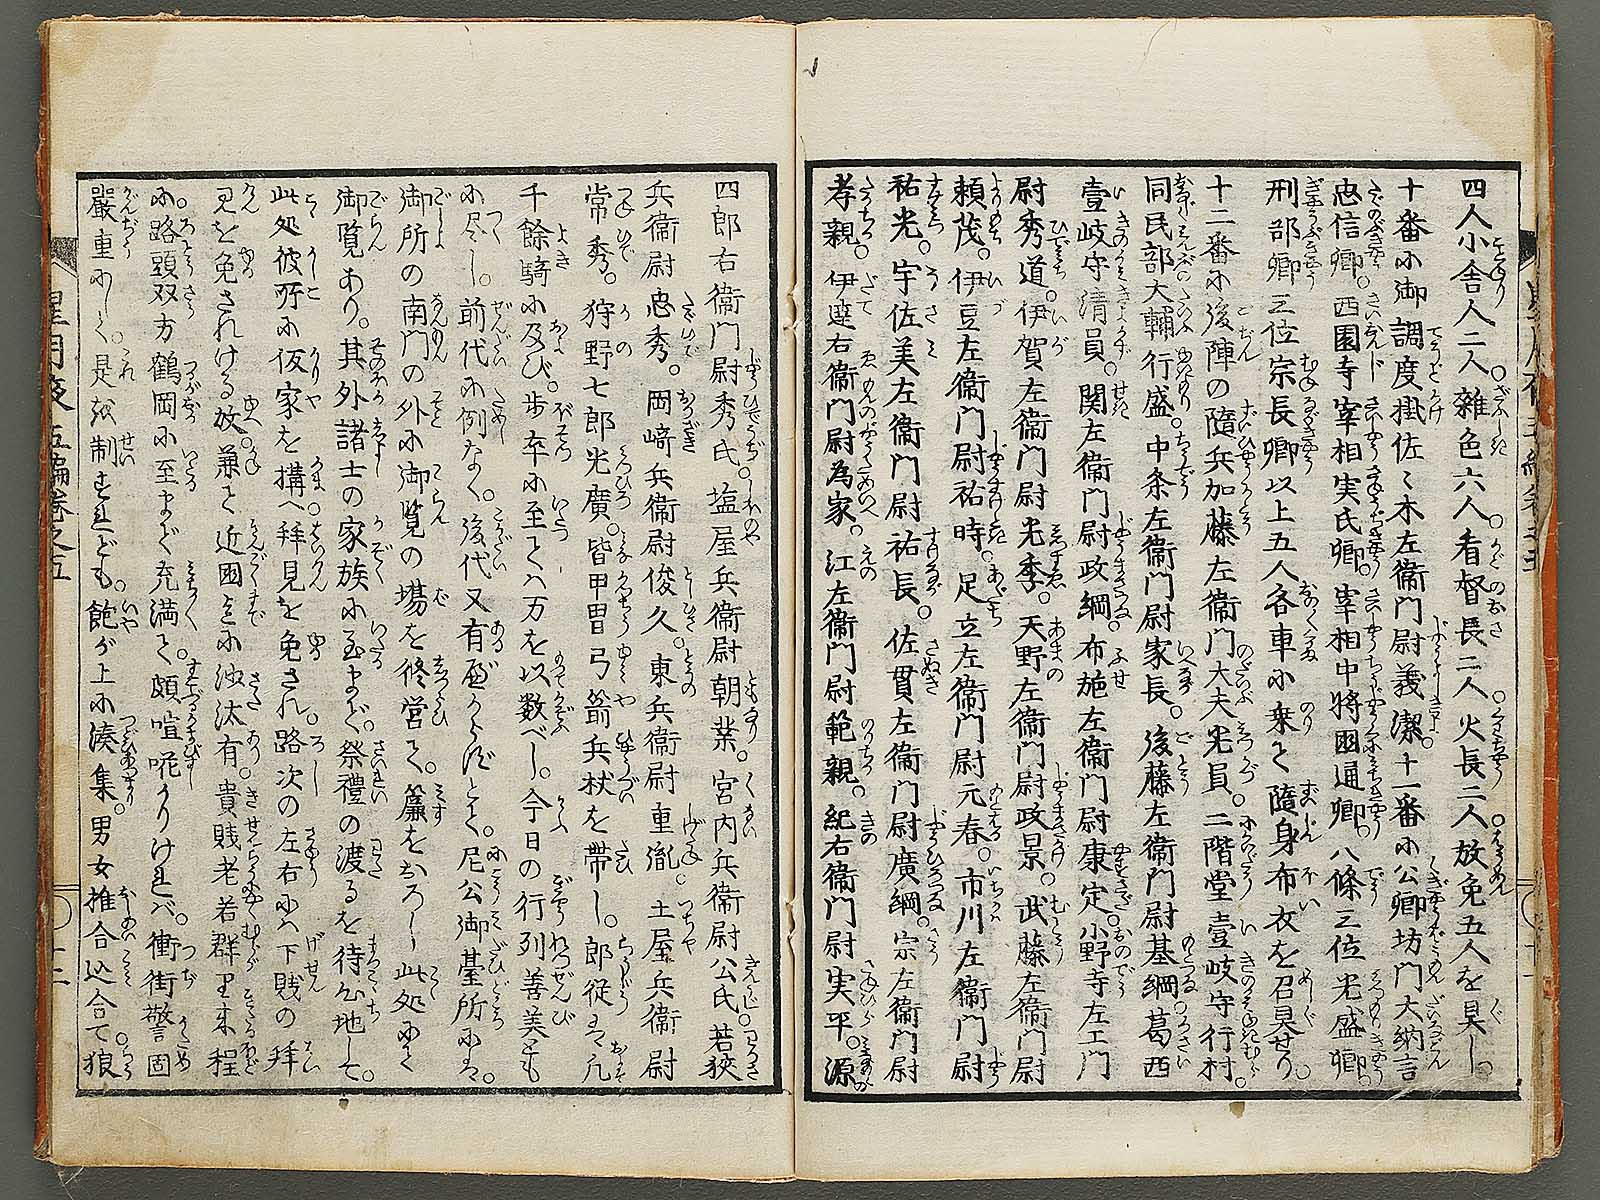 四人小舎人二人。雑色六人。看督長二人。火長二人。放免五人を具し。
十番小御調度掛佐々木左衞門尉義潔。十一番小公卿坊門大納言
忠信卿。西園寺宰相実氏卿。宰相中将國通卿。八條三位光盛卿。
刑部卿三位宗長卿以上五人各車小乗て隨身布衣を召具せり。
十二番小後陣の隨兵加藤左衞門大夫光員。二階堂壹岐守行村。
同民部大輔行盛。中条左衞門尉家長。後藤左衞門尉基綱。葛西
壹岐守清員。関左衞門尉政綱。布施左衞門尉康定。小野寺左エ門
尉秀道。伊賀左衞門尉光季。天野左衞門尉政景。武藤左衞門尉
頼茂。伊豆左衞門尉祐時。足立左衞門尉元春。市川左衞門尉
祐光。宇佐美左衞門尉祐長。佐貫左衞門尉廣綱。宗左衞門尉
孝親。伊達右衞門尉為家。江左衞門尉範親。紀右衞門尉実平。源
四郎右衞門尉秀氏。塩屋兵衞尉朝業。宮内兵衞尉公氏。若狹
兵衞尉忠秀。岡﨑兵衞尉俊久。東兵衞尉重胤。土屋兵衞尉
常秀。狩野七郎光廣。皆甲冑弓箭兵杖を帶し。郎従は凡
千餘騎小及び。歩卒小至ては万を以数べし。今日の行列善美とも
小尽し。前代小例なく。後代又有べからずとて。尼公御臺所には。
御所の南門の外小御覧の場を修営て。簾をおろし此処にて
御覧あり。其外諸士の家族小至まで。祭禮の渡るを待心地して。
此処彼所小仮家を搆へ拜見を免され。路次の左右には下賎の拜
見を免されける故。兼て近国迄小沙汰有。貴賎老若群り来程
小。路頭双方鶴岡小至まで充満て。頗喧咙かりければ。衝街警固
嚴重にして。是を制すれども。飽が上小湊集。男女推合込合て狼
星月夜 五編巻之五
十二